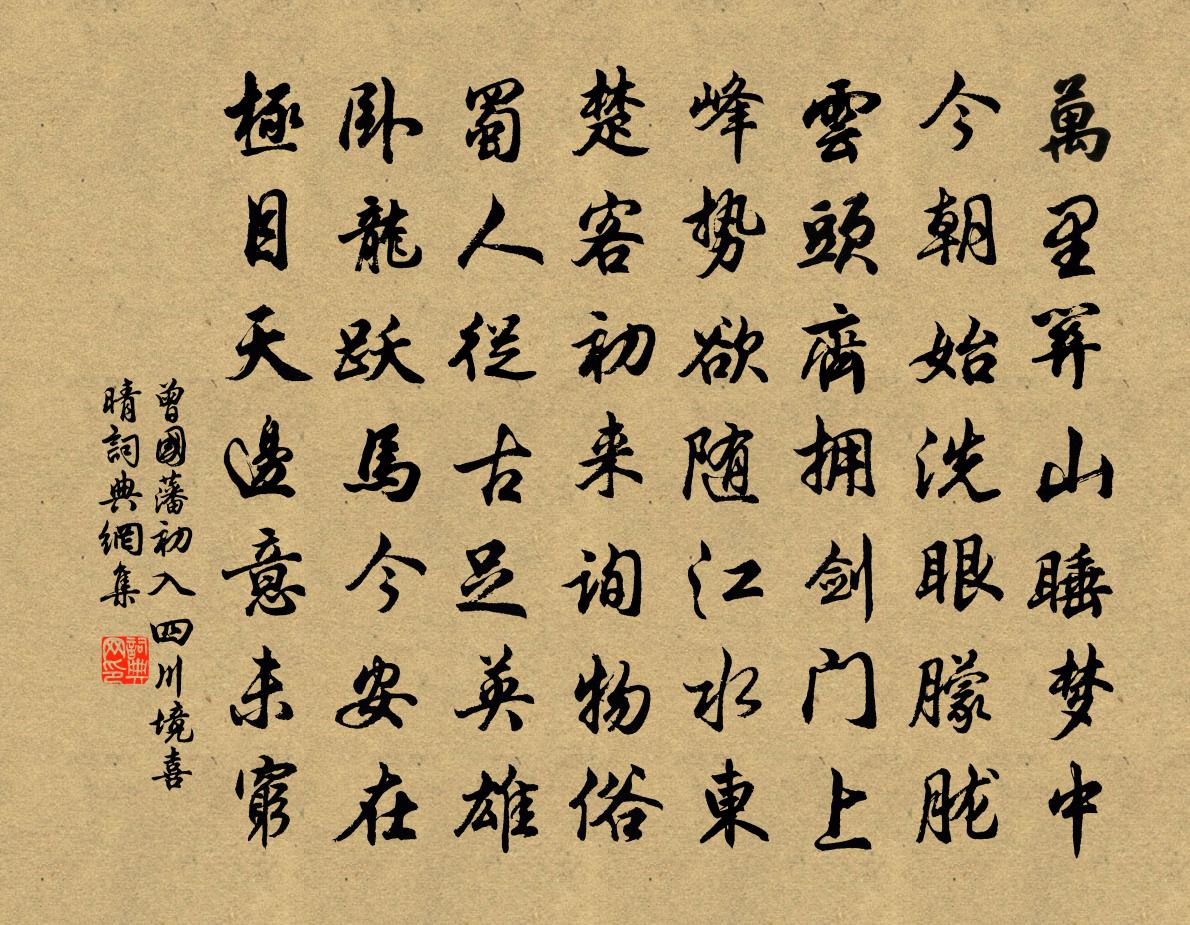 萬里關山睡梦中
今朝始洗眼朦胧
雲頭齊拥剑门上
峰势欲随江水東
楚客初来询物俗
蜀人從古足英雄
卧龍跃馬今安在
極目天邊意未窮
曾國藩初入四川境喜
晴詞典網集
詞典网印